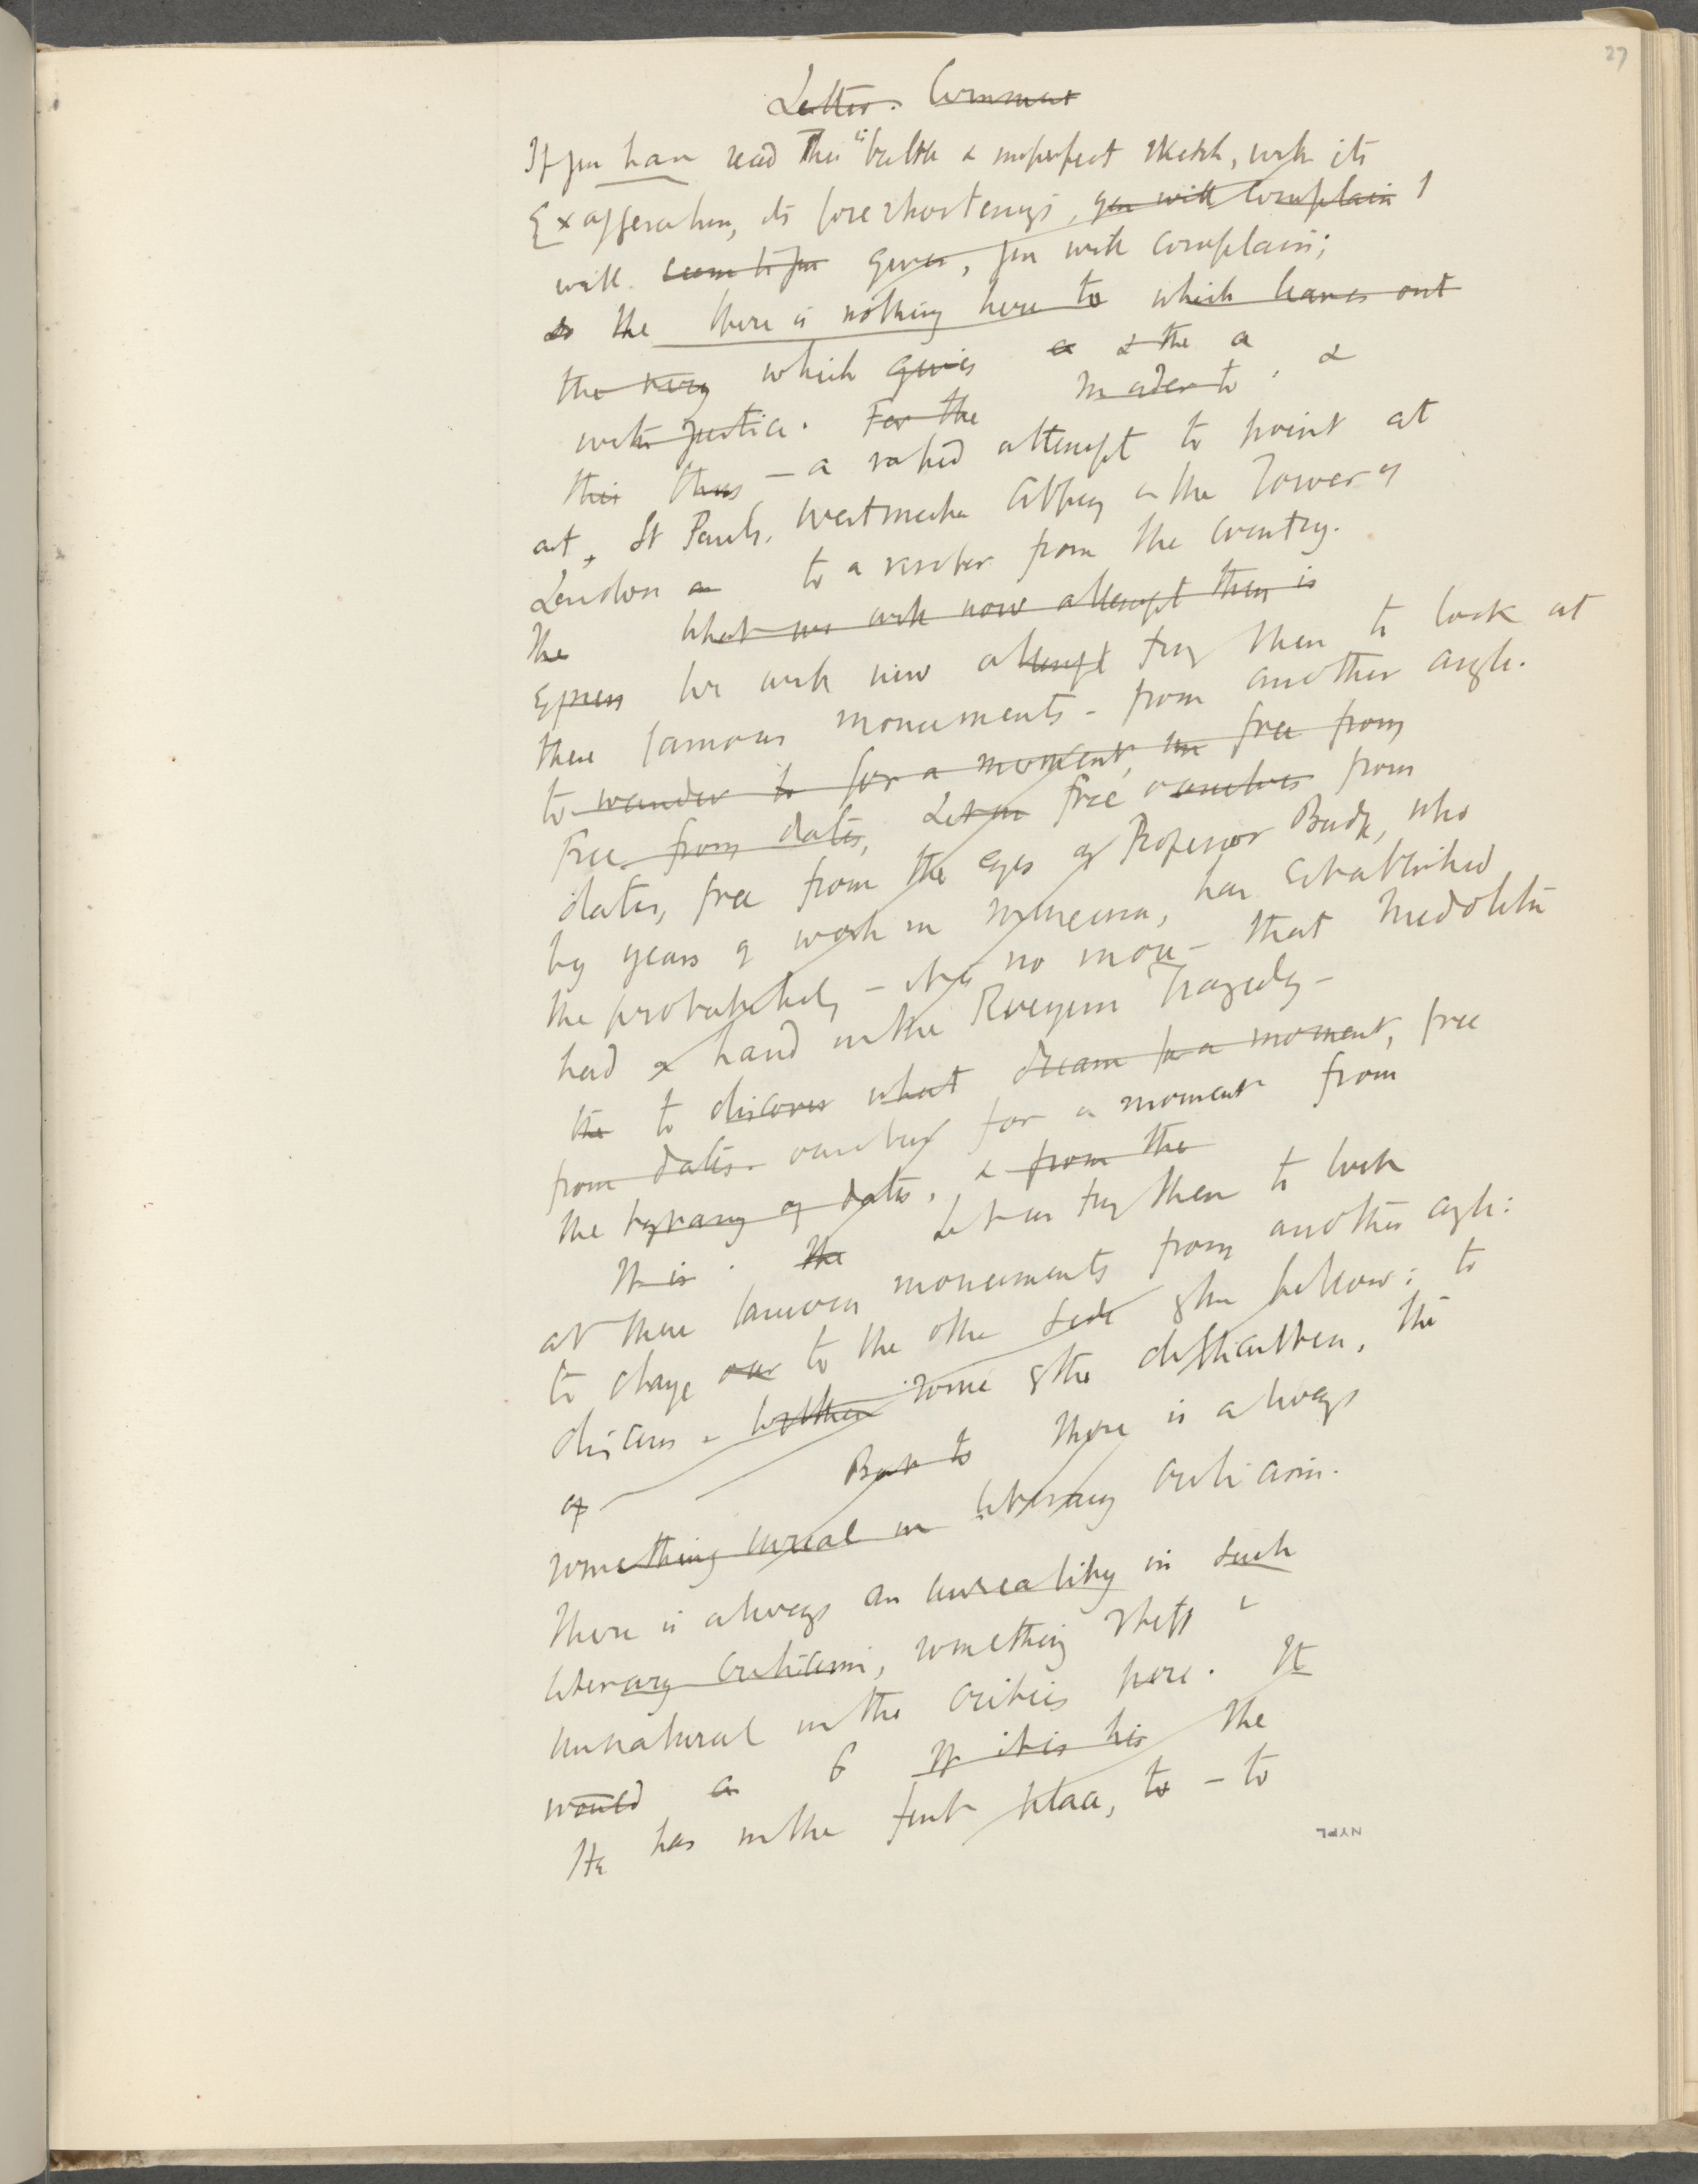 27
Letter. Comment
If you have read this " & imperfect sketch, with its
Exaggeration, its foreshortenings, you will complain I
will seem to you given, you will complain;
so the there is nothing here to which leaves out
the very which gives a & the a
with justice. For the In order to, &
this thus — a rapid attempt to point at
at, St Pauls, Westminster Abbey or the Tower of
London an to a visitor from the country.
The What we will now attempt then is
express We will now attempt try then to look at
these famous monuments - from another angle.
to wander to for a moment, free from
Free from dates, Let us free ourselves from
dates, free from the eyes of Professor Budge, who
by years of work in museum, has established
the probability - it is no more - that Middleton
had a hand in the Revengers Tragedy -
the to discover what dream for a moment, free
from dates. ourselves for a moment from
the tyranny of dates, & from the
It is. The Let us try then to look
at these famous monuments from another angle:
to change our to the other side of the pillow: to
discuss - some of the difficulties, the
of But to there is always
something unreal in literary criticism.
There is always an unreality in such
literary criticism, something stiff &
unnatural in the critics pose. It
would a If it is his The
He has in the first place, to - to
NYPL